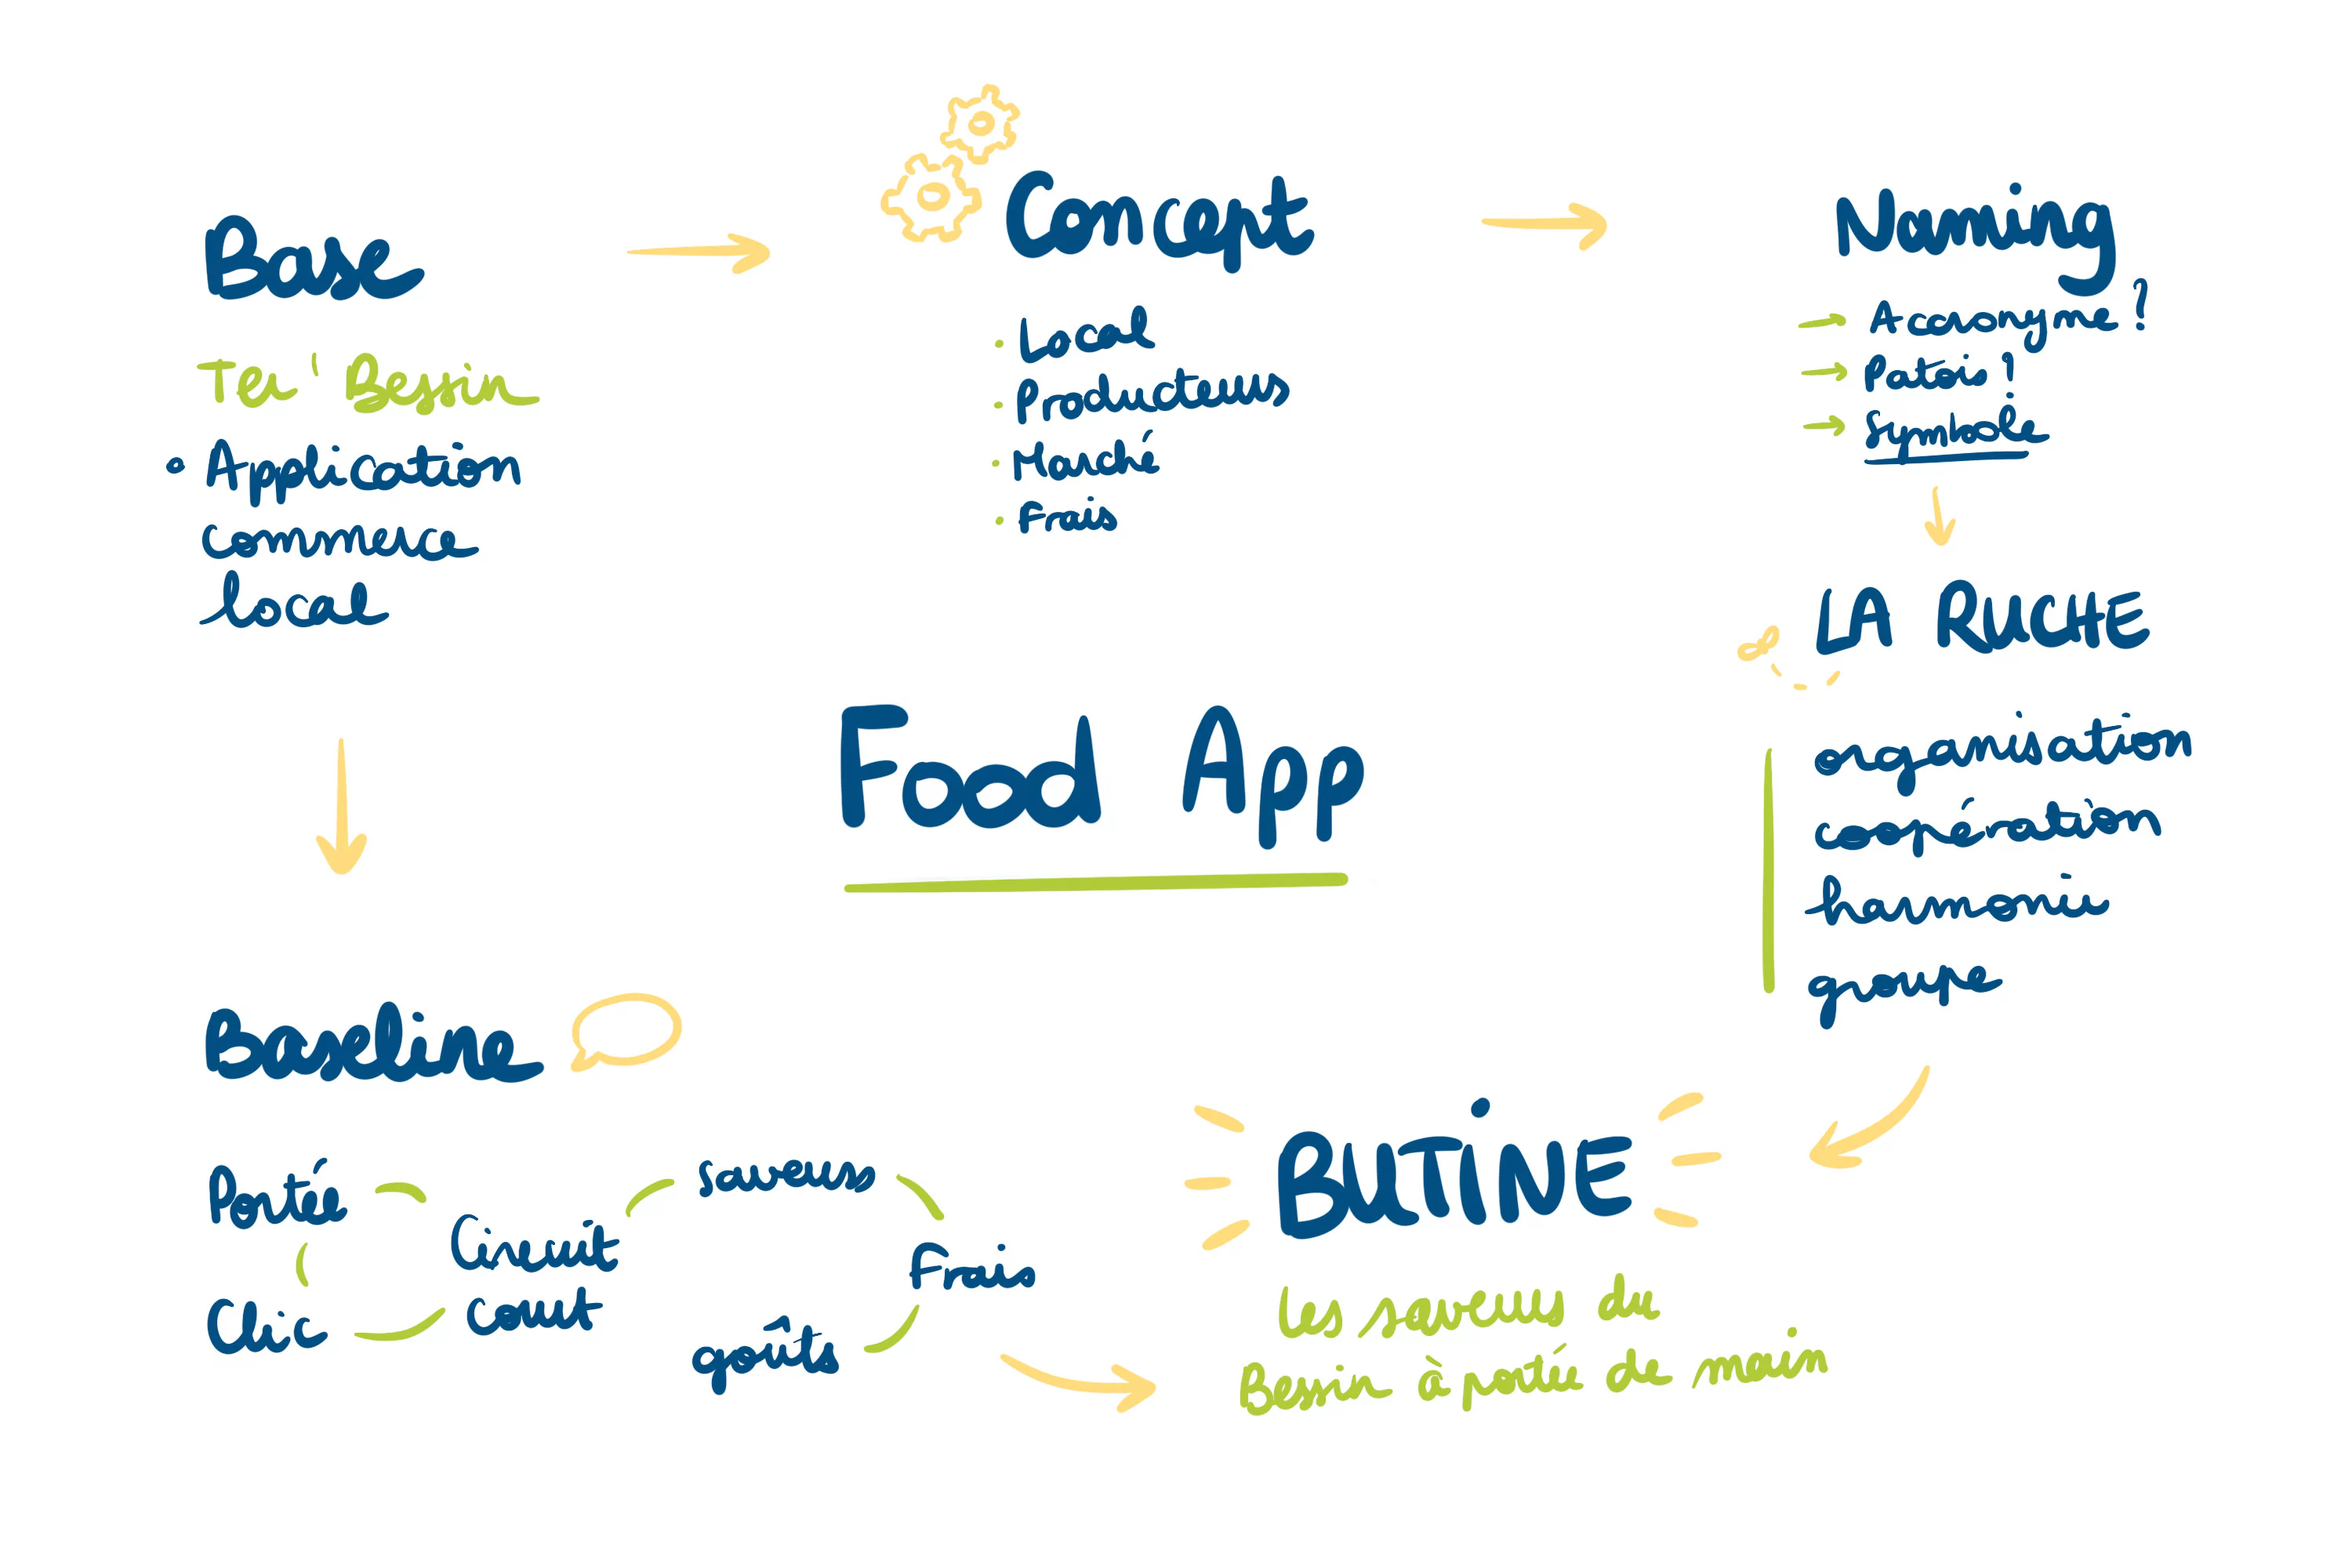 Base
Ter' Bessin
• Application
commerce
local
Concept
• Local
• Producteurs
• Marché
• Frais
Naming
→ Acronyme ?
→ Patois ?
→ Symbole
LA RUCHE
organisation
coopération
harmonie
groupe
Food App
Baseline
Portée
Clic
Circuit
Court
saveurs
Frais
goûts
BUTINE
Les saveurs du
Bessin à portée de main